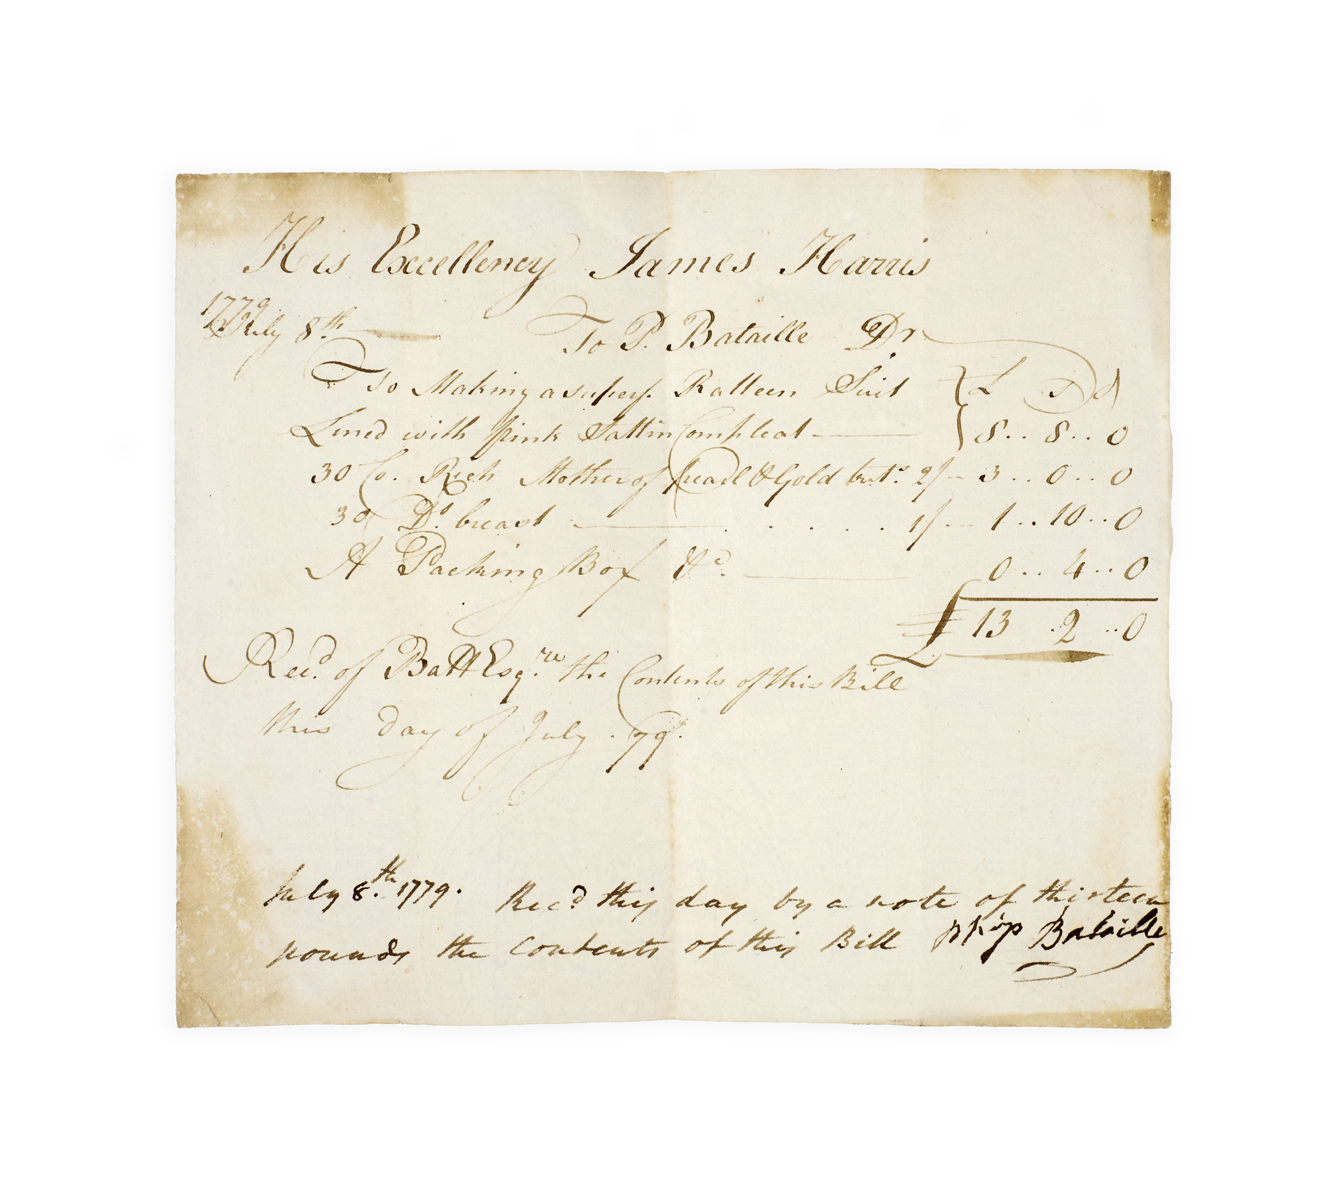 His Excellency James Harris
1779
July 8th. To P. Bataille Dr
To Making a superf. Ratteen Suit £ S D
Lined with pink Sattin Compleat 8.. 8.. 0
30 Co. Rich Mother of pearl & Gold buts. 2/- 3.. 0.. 0
30 Do. breast 1/- 1.. 10.. 0
A Packing Box &c. 0.. 4.. 0
£ 13 .2 ..0
Recd. of Batt Esq. the Contents of this Bill
this day of July. 79.
July 8.th 1779. Recd this day by a note of thirteen
pounds the contents of this Bill phip Bataille